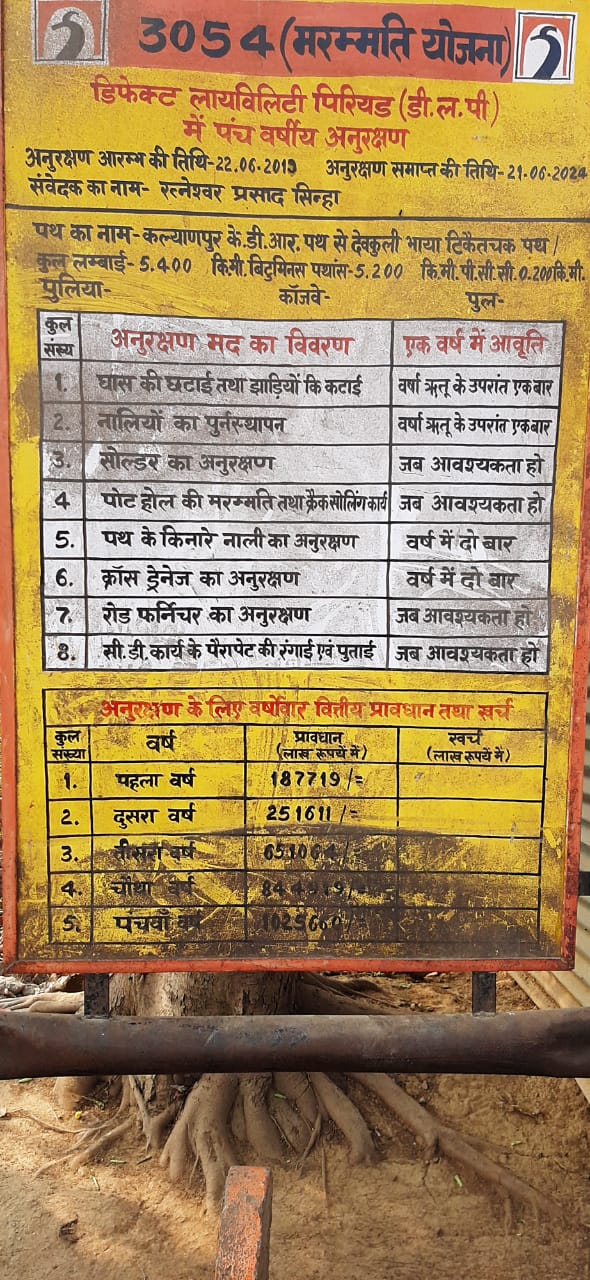 3054 (मरम्मति योजना)
डिफेक्ट लायविलिटी पिरियड (डी.ल.पी)
में पंच वर्षीय अनुरक्षण
अनुरक्षण आरम्भ की तिथि-22.06.2019 अनुरक्षण समाप्त की तिथि-21.06.2024
संवेदक का नाम- रत्नेश्वर प्रसाद सिन्हा
पथ का नाम-कल्याणपुर के.डी.आर. पथ से देवकुली भाया टिकैतचक पथ/
कुल लम्बाई-5.400 कि.मी. बिटुमिनस पथांस-5.200 कि.मी.पी.सी.सी.0.200कि.मी.
पुलिया- कॉजवे- पुल-
कुल संख्य अनुरक्षण मद का विवरण एक वर्ष में आवृति
1. घास की छटाई तथा झाड़ियों कि कटाई वर्षा ऋतू के उपरांत एकबार
2. नालियों का पुर्नस्थापन वर्षा ऋतू के उपरांत एकबार
3. सोल्डर का अनुरक्षण जब आवश्यकता हो
4 पोट होल की मरम्मति तथा क्रैक सोलिंग कार्य जब आवश्यकता हो
5. पथ के किनारे नाली का अनुरक्षण वर्ष में दो बार
6. क्रॉस ड्रेनेज का अनुरक्षण वर्ष में दो बार
7. रोड फर्निचर का अनुरक्षण जब आवश्यकता हो
8. सी.डी. कार्य के पैरापेट की रंगाई एवं पुताई जब आवश्यकता हो
अनुरक्षण के लिए वर्षोवार वित्तीय प्रावधान तथा खर्च
कुल संख्या वर्ष प्रावधान (लाख रूपये में) खर्च (लाख रूपयें में)
1. पहला वर्ष 187719/=
2. दुसरा वर्ष 251611/=
3. तीसरा वर्ष
4. चौथा वर्ष
5. पंचवाँ वर्ष